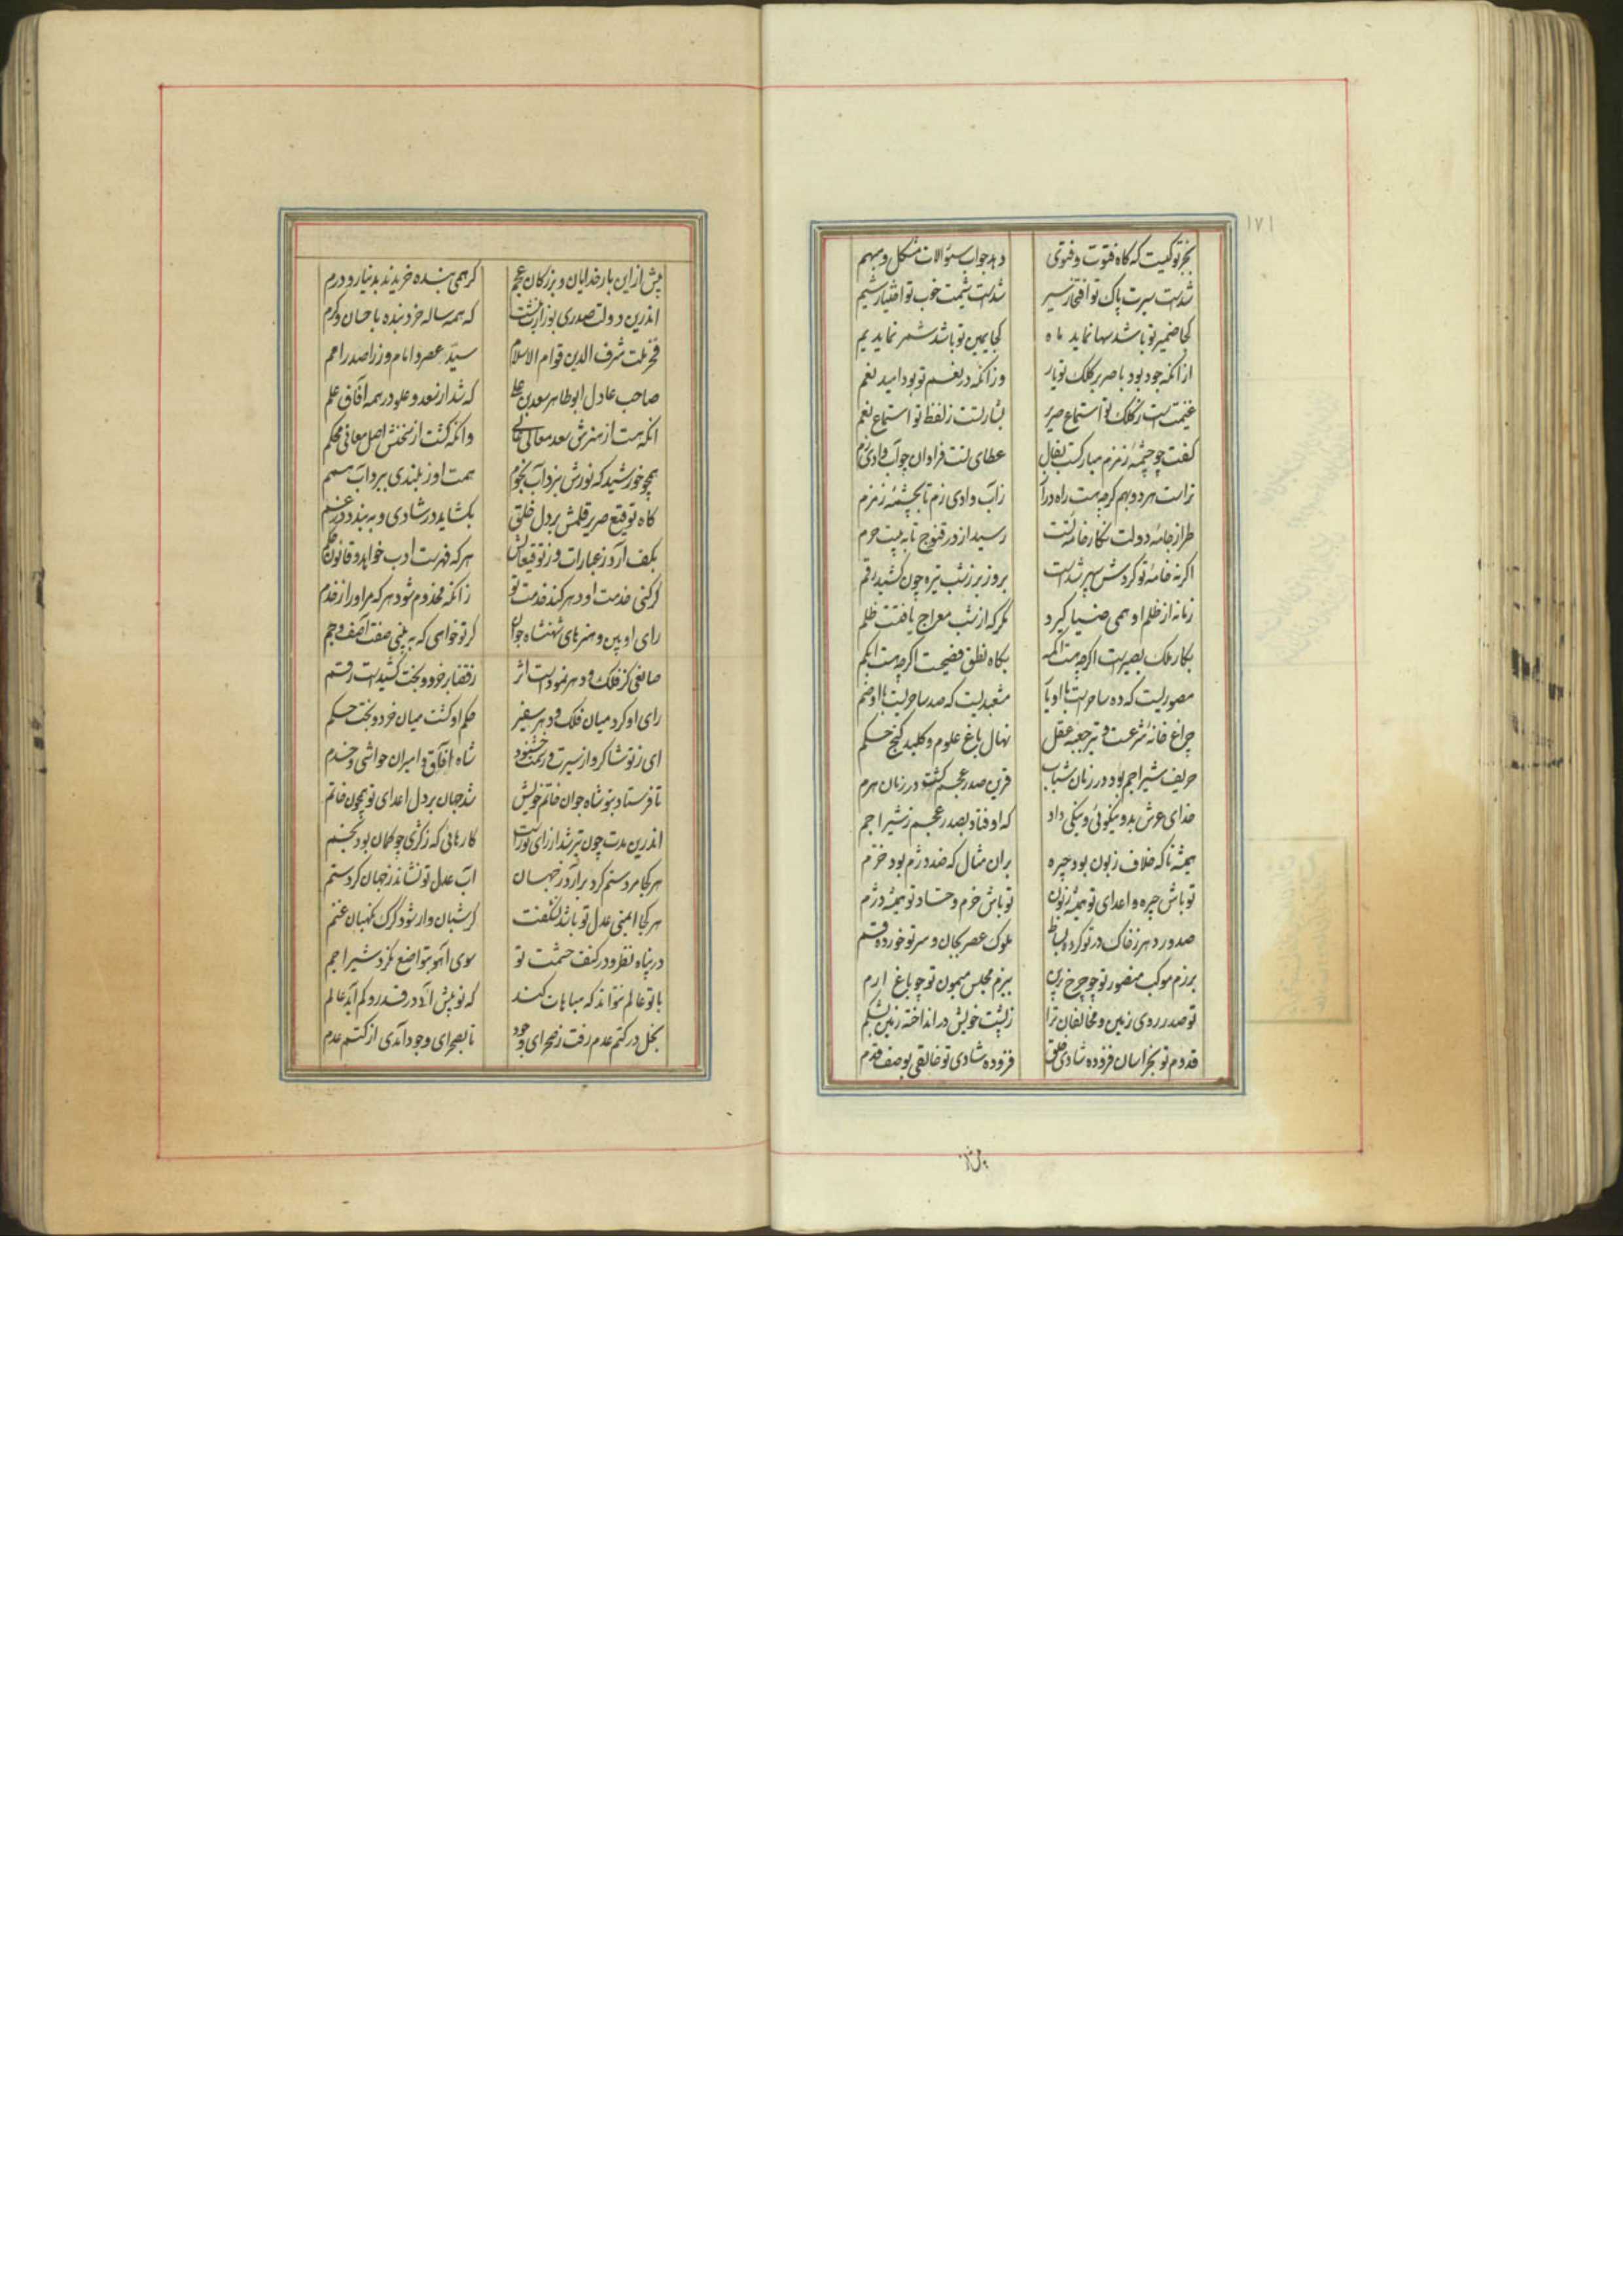 ۱۷۱
بجز تو کیست که گاه فتوت و فتوی
دهد جواب سئوالات مشکل و مبهم
شدست سیرت پاک تو افتخار سیر
شدست شیمت خوب تو اختیار شیم
کجا ضمیر تو باشد سها نماید ماه
کجا یمین تو باشد شمر نماید یم
از انکه جود بود با صریر کلک تو یار
وزانکه در نغم تو بود امید نعم
غنیمت است ز کلک تو استماع صریر
بشارتست ز لفظ تو استماع نغم
کفت چو چشمه زمزم مبارکست بفال
عطای تست فراوان چو آب وادی زم
تراست هر دو بهم گرچه هست راه دراز
ز آب وادی زم تا بچشمه زمزم
طراز جامه دولت نگار خامه تست
رسید از در قنوج تا به بیت حرم
اگر نه خامه تو گردش سپهر شدست
بروز بر ز شب تیره چون کشید رقم
زمانه از ظلم او همی ضیا گیرد
مگر که از شب معراج یافتست ظلم
بکار ملک بصیرست اگرچه هست اکمه
بگاه نطق فصیحست اگرچه هست ابکم
مصوریست که ده ساحرست با او یار
مشعبدیست که صد ساحریست با او ضم
چراغ خانه شرعست و تیر جعبه عقل
نهال باغ علوم و کلید گنج حکم
حریف شیر اجم بود در زمان شباب
قرین صدر عجم گشت در زمان هرم
خدای عرش بدو نیکوئی و نیکی داد
که اوفتاد بصدر عجم ز شیر اجم
همیشه تا که خلاف زبون بود چیره
بران مثال که ضد دژم بود خرم
تو باش چیره و اعدای تو همیشه زبون
تو باش خرم و حساد تو همیشه دژم
صدور دهر ز خاک در تو کرده بساط
ملوک عصر بجان و سر تو خورده قسم
برزم موکب منصور تو چو چرخ برین
ببزم مجلس میمون تو چو باغ ارم
تو صدر روی زمین و مخالفان ترا
ز پشت خویش در انداخته زمین بشکم
قدوم تو بخراسان فزوده شادی خلق
فزوده شادی تو خالقی بوصف قدم
پیش از
پیش از این بار خدایان و بزرگان عجم
گر همی بنده خریدند بدینار و درم
اندرین دولت صدری بوزارت بنشست
که همه ساله خرد بنده باحسان و کرم
فخر ملت شرف الدین قوام الاسلام
سید عصر و امام وزرا صدر امم
صاحب عادل ابوطاهر سعد بن علی
که شد از سعد و علو در همه آفاق علم
انکه هست از هنرش سعد معالی عالی
وانکه گشت از سخنش اصل معانی محکم
همچو خورشید که نورش ببرد آب نجوم
همت او ز بلندی ببرد آب همم
گاه توقیع صریر قلمش بر دل خلق
بکشاید در شادی و به بندد در غم
بکف آرد ز عبارات و ز توقیعاتش
هر که فهرست ادب خواهد و قانون حکم
گر کنی خدمت او دهر کند خدمت تو
زانکه مخدوم شود هر که مر او راز خدم
رای او بین و هنرهای شهنشاه جوان
گر تو خواهی که به بینی صفت آصف و جم
صانعی کز فلک و دهر نمودست اثر
ز قضا بر خرد و بخت کشیدست رقم
رای او کرد میان فلک و دهر سفیر
حکم او گشت میان خرد و بخت حکم
ای ز تو شاکر و از سیرت و رسمت خشنود
شاه آفاق و امیران حواشی و خدم
تا فرستاد بتو شاه جوان خاتم خویش
شد جهان بر دل اعدای تو همچون خاتم
اندرین مدت چون تیر شد از رای تو راست
کارهائی که ز کژی چو کمان بود بخم
هر کجا مرد ستم گرد برآرد ز جهان
آب عدل تو نشاند ز جهان گرد ستم
هر کجا ایمنی عدل تو باشد نشگفت
گر شبان وار شود گرگ نگهبان غنم
در پناه نظر و در کنف حشمت تو
سوی آهو بتواضع نگرد شیر اجم
با تو عالم نتواند که مباهات کند
که تو بیش آئی در قدر و کم آید عالم
بخل در کتم عدم رفت ز صحرای وجود
تا بصحرای وجود آمدی از کتم عدم